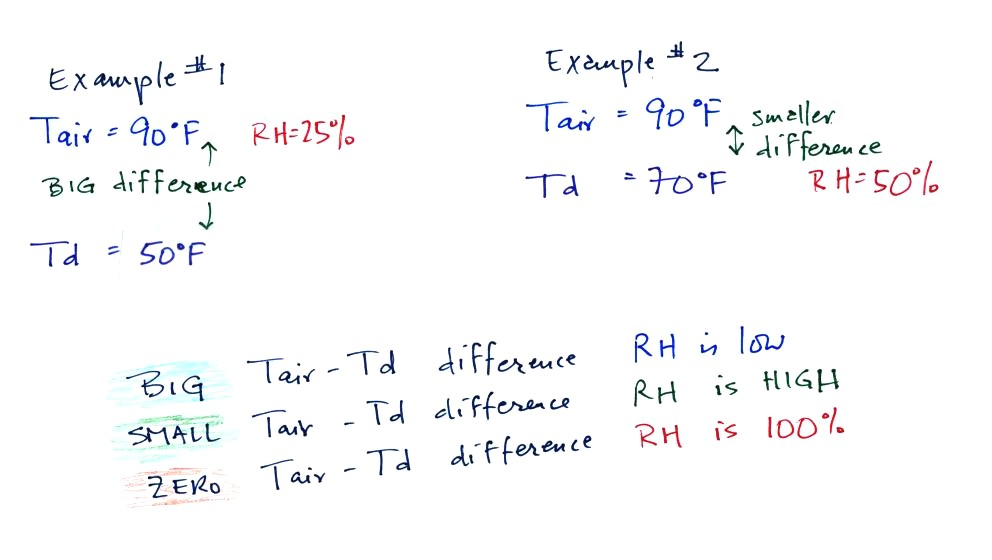 Example #1
Tair = 90°F RH=25%
BIG difference
Td = 50°F
Example #2
Tair = 90°F smaller
difference
Td = 70°F RH=50%
BIG Tair - Td difference RH is low
SMALL Tair - Td difference RH is HIGH
ZERO Tair - Td difference RH is 100%